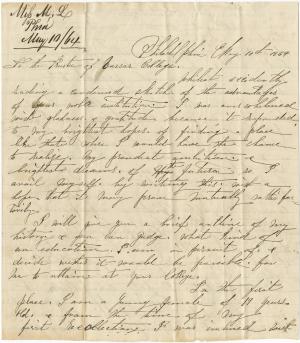 Mrs M. L
Phila
May 10/64
Philadelphia May 10th 1864
To the Trustees of Vassar College.
Whilst accidently
reading a condensed sketch of the advantages
of your noble institution I was overwhelmed
with gladness & gratitude because it responded
to my brightest hopes of finding a place
like that where I would have the chance
to realize my fondest ambitions &
brightest dreams of future so I
avail myself by writing this and
hope that it may prove mutually satisfac
torily
I will give you a brief outline of my
history & you can judge what kind of
an education I am in pursuit of &
decide wether it would be possible for
me to attain at your College.
In the first
place. I am a young female of 19 years
old. & from the time of my
first Recollections I was inclined with